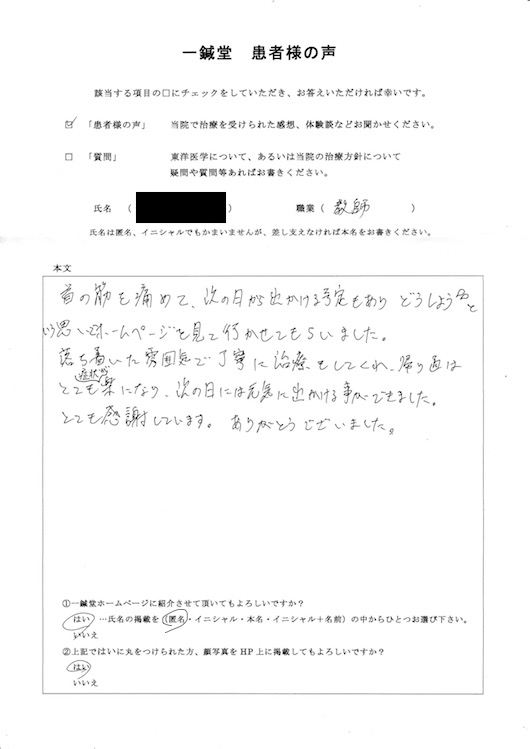 一鍼堂 患者様の声
該当する項目の□にチェックをしていただき、お答えいただければ幸いです。
☑ 「患者様の声」 当院で治療を受けられた感想、体験談などお聞かせください。
□ 「質問」 東洋医学について、あるいは当院の治療方針について
疑問や質問等あればお書きください。
氏名 ( ) 職業 ( 教師 )
氏名は匿名、イニシャルでもかまいませんが、差し支えなければ本名をお書きください。
本文
首の筋を痛めて、次の日から出かける予定もあり どうしようかと
いう思いでホームページを見て行かせてもらいました。
落ち着いた雰囲気で丁寧に治療をしてくれ、帰り道は
症状が
とても楽になり、次の日には元気に出かける事ができました。
とても感謝しています。 ありがとうございました。
①一鍼堂ホームページに紹介させて頂いてもよろしいですか?
はい …氏名の掲載を (匿名・イニシャル・本名・イニシャル+名前) の中からひとつお選び下さい。
いいえ
②上記ではいに丸をつけられた方、顔写真を HP 上に掲載してもよろしいですか?
はい
いいえ